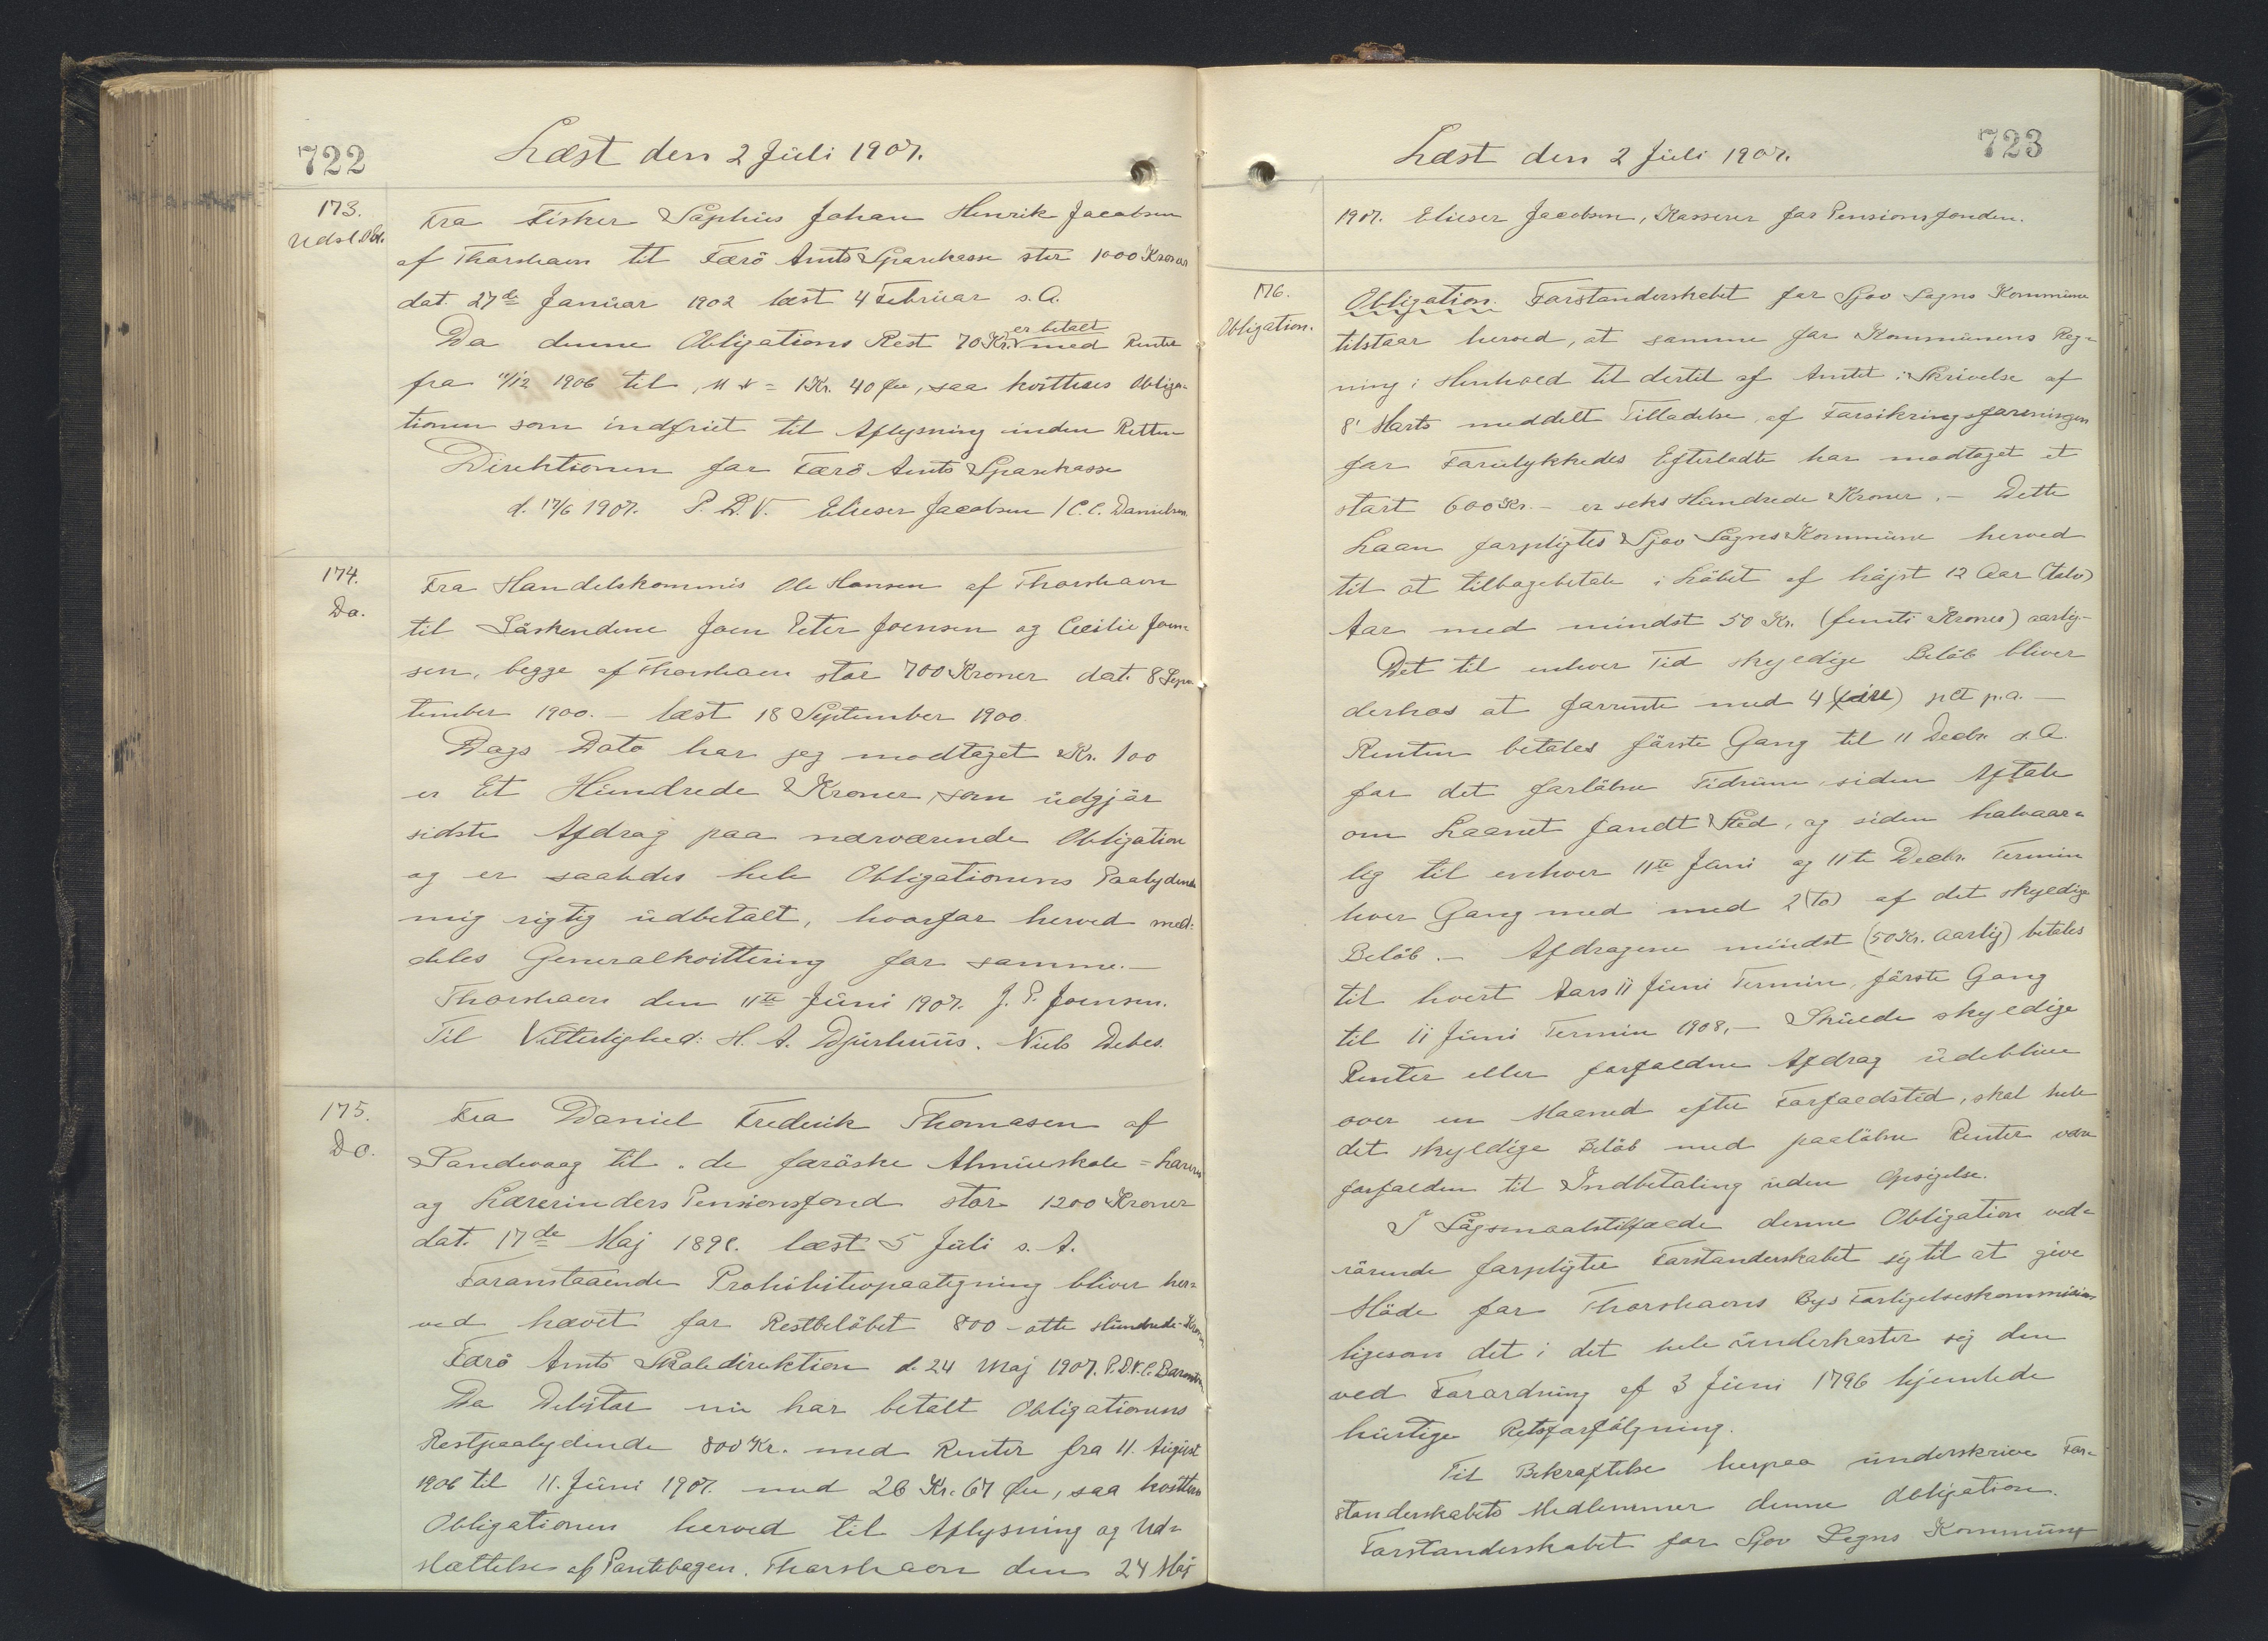 722
Læst den 2 Juli 1907.
173.
Udsl. Obl.
Fra Fisker Sophus Johan Henrik Jacobsen
af Thorshavn til Færö Amts Sparekasse stor 1000 Kroner
dat. 27de Januar 1902 læst 4 Februar s. A.
Da denne Obligations Rest 70 Kr. er betalt med Renter
fra 11/12 1906 til 11 = 1 Kr. 40 Øre, saa kvitteres Obliga-
tionen som indfriet til Aflysning inden Retten
Direktionen for Færö Amts Sparekasse
d. 17/6 1907. P. D. V. Elieser Jacobsen / C. C. Danielsen.
174.
Do.
Fra Handelskommis Ole Hansen af Thorshavn
til Söskendene Joen Peter Joensen og Cecilie Joen-
sen, begge af Thorshavn stor 700 Kroner dat. 8 Sep-
tember 1900. — læst 18 September 1900.
Dags Dato har jeg modtaget Kr. 100
er Et Hundrede Kroner, som udgjör
sidste Afdrag paa nærværende Obligation
og er saaledes hele Obligationens Paalydende
mig rigtig udbetalt, hvorfor herved med-
deles Generalkvittering for samme. —
Thorshavn den 11te Juni 1907. J. P. Joensen.
Til Vitterlighed: H. A. Djurhuus. Niels Debes.
175.
Do.
Fra Daniel Frederik Thomasen af
Sandevaag til de færöske Almueskole = Lærer
og Lærerinders Pensionsfond stor 1200 Kroner
dat. 17de Maj 1898. læst 5 Juli s. A.
Foranstaaende Prohibitivpaategning bliver her-
ved hævet for Restbelöbet 800 - otte Hundrede - Kroner
Færö Amts Skoledirektion d. 24 Maj 1907. P.D.V. C. Bærentsen
Da Debitor nu har betalt Obligationens
Restpaalydende 800 Kr. med Renter fra 11. August
1906 til 11. Juni 1907. med 26 Kr. 67 Øre, saa kvitteres
Obligationen herved til Aflysning og Ud-
slættelse af Pantebogen. Thorshavn den 24 Maj
723
Læst den 2 Juli 1907.
1907. Elieser Jacobsen, Kasserer for Pensionsfonden.
176.
Obligation.
Obligation. Forstanderskabet for Sjov Sogns Kommune
tilstaar herved, at samme for Kommunens Reg-
ning i Henhold til dertil af Amtet i Skrivelse af
8' Marts meddelt Tilladelse, af Forsikringsforeningen
for Forulykkedes Efterladte har modtaget et
stort 600 Kr. — er seks Hundrede Kroner. — Dette
Laan forpligtes Sjov Sogns Kommune herved
til at tilbagebetale i Löbet af höjst 12 Aar (tolv)
Aar med mindst 50 Kr. (femti Kroner) aarlig —
Det til enhver Tid skyldige Belöb bliver
derhos at forrente med 4 (fire) pCt p.a. —
Renten betales förste Gang til 11 Decbr. d. A.
for det forlöbne Tidsrum, siden Aftale
om Laanet fandt Sted, og siden halvaar-
lig til enhver 11te Juni og 11te Decbr. Termin
hver Gang med med 2 (to) af det skyldige
Belöb. — Afdragene mindst (50 Kr. aarlig) betales
til hvert Aars 11 Juni Termin, förste Gang
til 11 Juni Termin 1908. — Skulde skyldige
Renter eller forfaldne Afdrag udeblive
over en Maaned efter Forfaldstid, skal hele
det skyldige Belöb med paalöbne Renter være
forfalden til Indbetaling uden Opsigelse.
I Sögsmaalstilfælde denne Obligation ved-
rörende forpligter Forstanderskabet sig til at give
Möde for Thorshavns Bys Forligelseskommission
ligesom det i det hele underkaster sig den
ved Forordning af 3 Juni 1796 hjemlede
hurtige Retsforfölgning.
Til Bekræftelse herpaa underskrive For-
standerskabets Medlemmer denne Obligation.
Forstanderskabet for Sjov Sogns Kommune